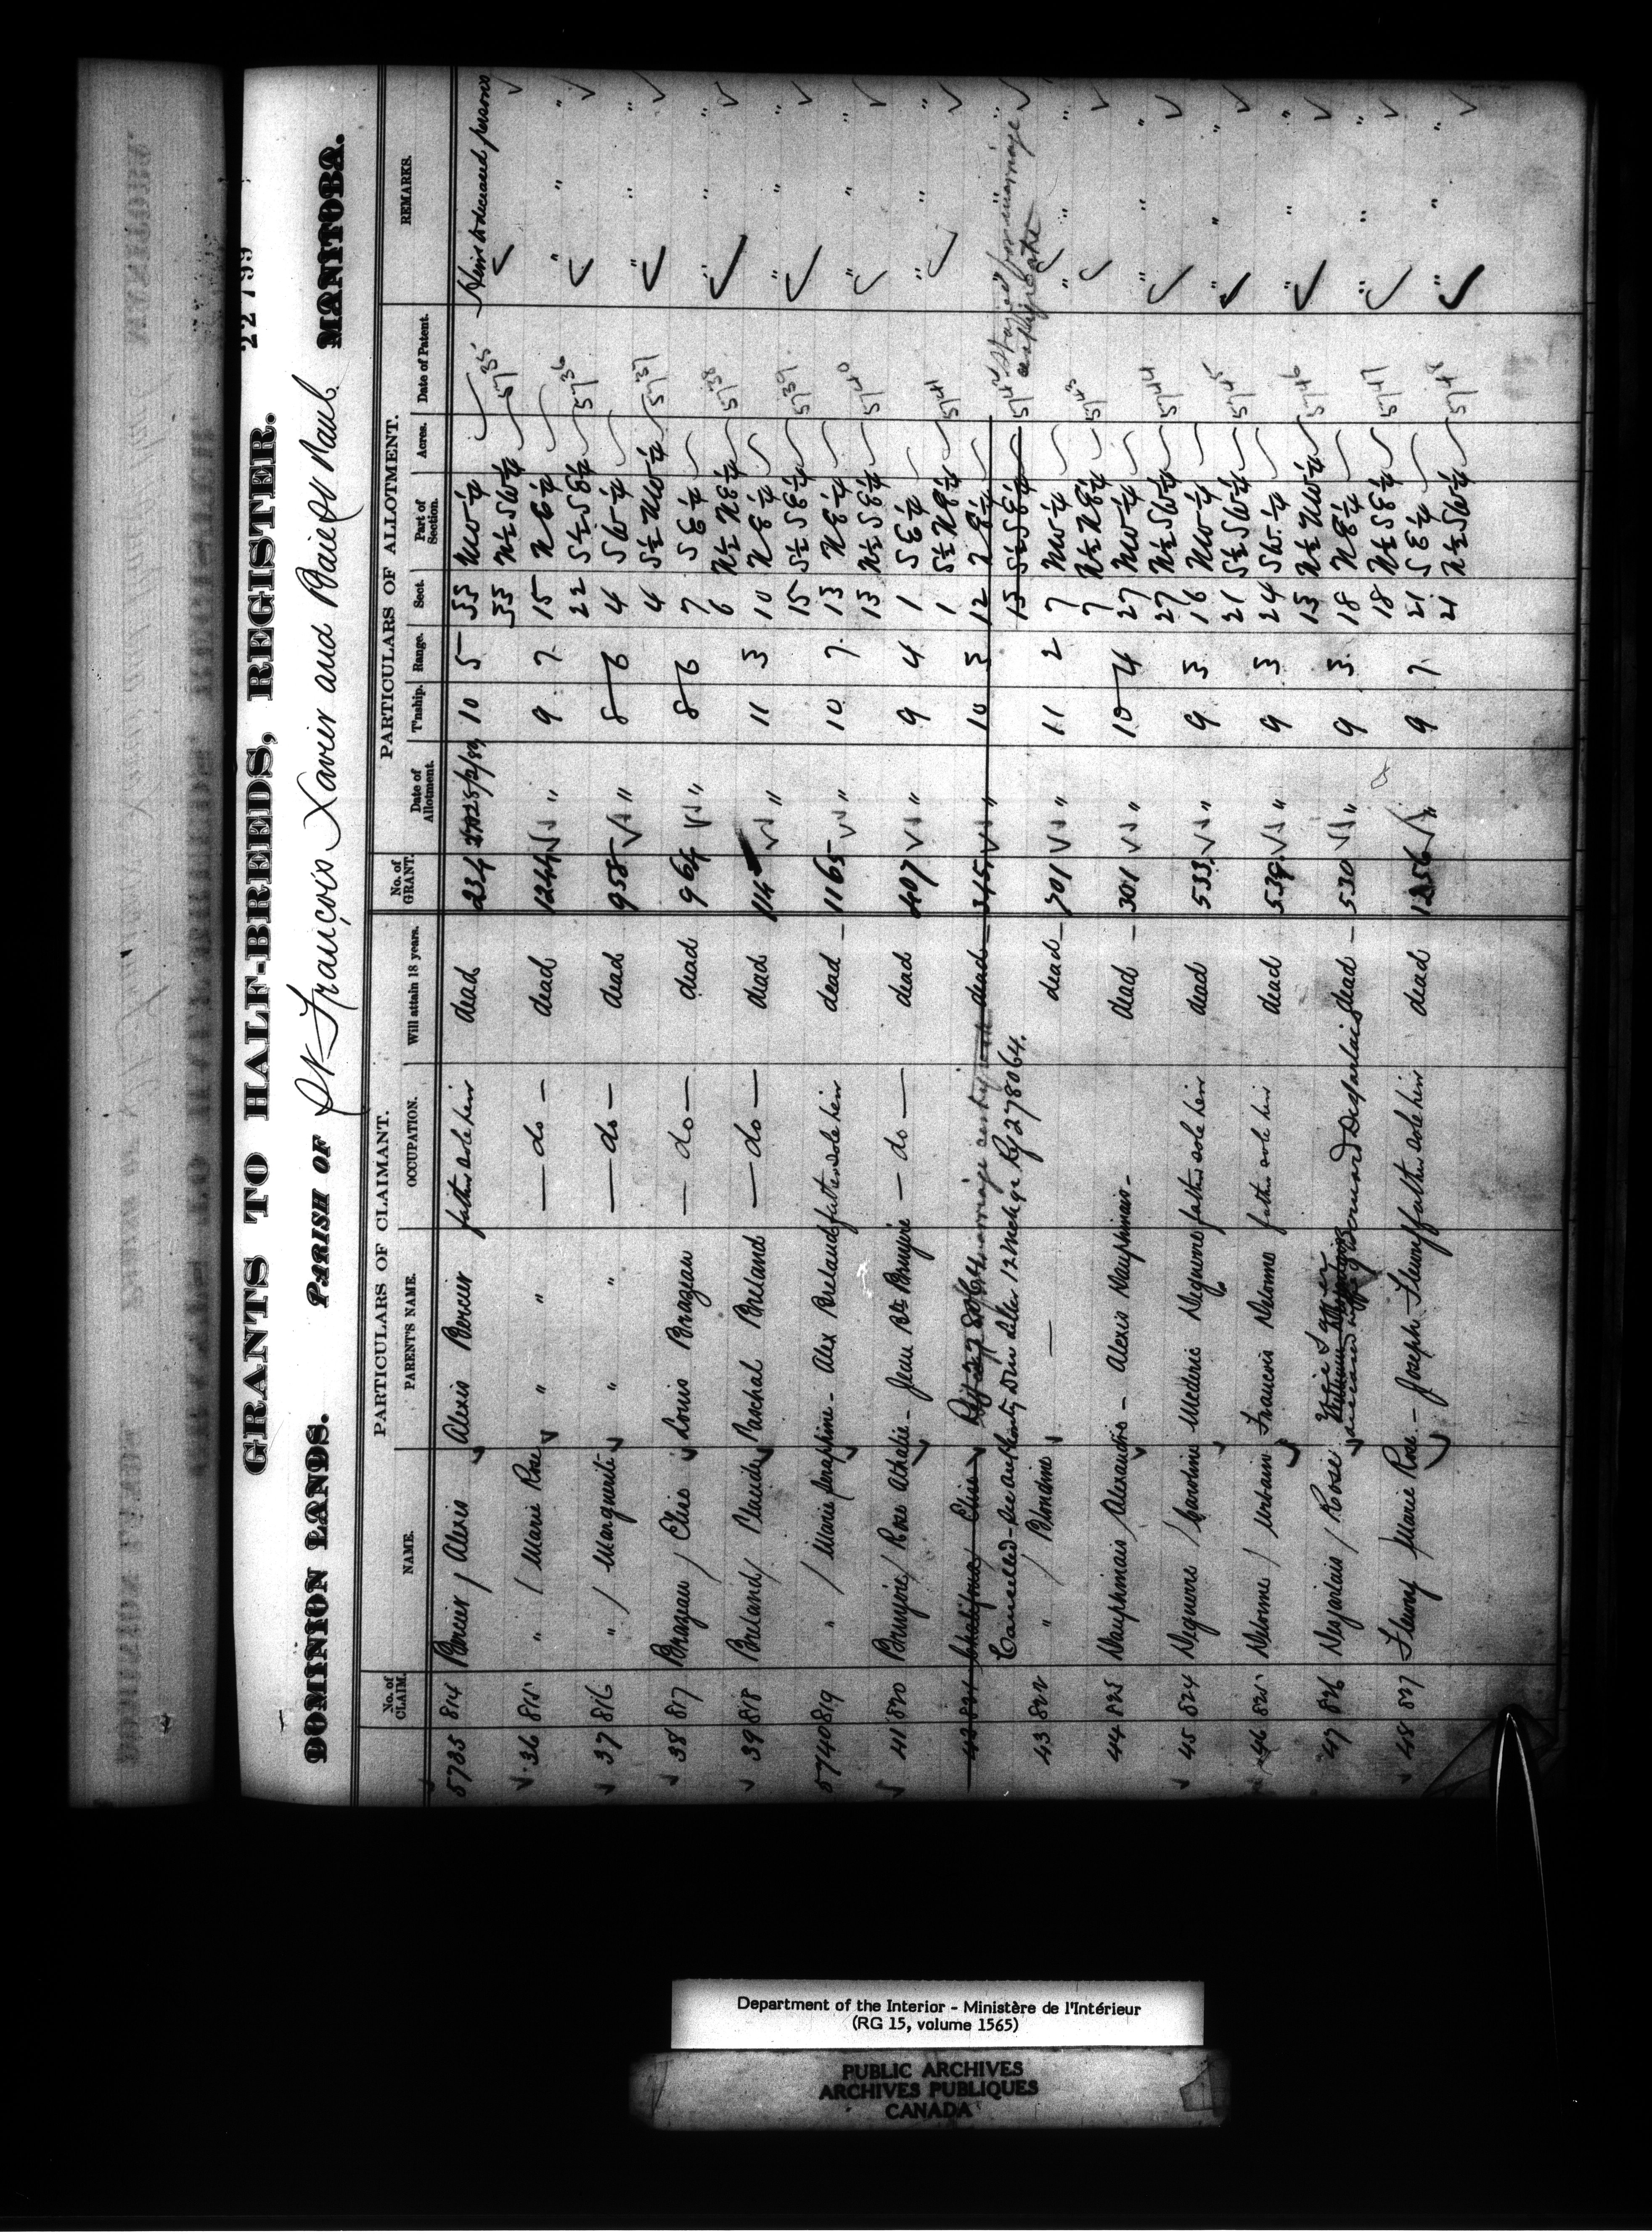 22799
GRANTS TO HALF-BREEDS, REGISTER.
DOMINION LANDS. PARISH OF St François Xavier and Baie St Paul MANITOBA.
PARTICULARS OF CLAIMANT. PARTICULARS OF ALLOTMENT.
No. of CLAIM. NAME. PARENT'S NAME. OCCUPATION. Will attain 18 years. No. of GRANT. Date of Allotment. T'nship. Range. Sect. Part of Section. Acres. Date of Patent. REMARKS.
5735 814 Bercier / Alexis Alexis Bercier father sole heir dead 234 10 5 33 NW ¼ Heirs to deceased persons
33 N½ SW ¼ 5735
36 815 " / Marie Rose " " — do — dead 1244 " 9 7 15 NE ¼ " "
22 S½ SE ¼ 5736
37 816 " / Marguerite " " — do — dead 958 " 8 6 4 SW ¼ " "
4 S½ NW ¼ 5737
38 817 Brazeau / Elise Louis Brazeau — do — dead 964 " 8 6 7 SE ¼ " "
6 N½ NE ¼ 5738
39 818 Breland / Placide Paschal Breland — do — dead 114 " 11 3 10 NE ¼ " "
15 S½ SE ¼ 5739
5740 819 " / Marie Seraphine - Alex Breland father sole heir dead - 1165 " 10 7 13 NE ¼ " "
13 N½ SE ¼ 5740
41 820 Bruyere / Rose Athalie - Jean Bte Bruyere — do — dead 407 " 9 4 1 SE ¼ " "
1 S½ NE ¼ 5741
42 821 Chalifoux / Elise Ref 278064 marriage certificate dead - 315 " 10 3 12 NE ¼ "
Cancelled - See authority D.M's letter 12 March 92 Rf 278064. 13 S½ SE ¼ 5742 Stayed for marriage certificate
43 822 " / Blondine — dead - 701 " 11 2 7 NW ¼ " "
7 N½ NE ¼ 5743
44 823 Dauphinais / Alexandre - Alexis Dauphinais - dead - 301 " 10 4 27 NW ¼ " "
27 N½ SW ¼ 5744
45 824 Deguerre / Caroline Mederic Deguerre father sole heir dead 533 " 9 3 16 NW ¼ " "
21 S½ SW ¼ 5745
46 825 Delorme / Urbain Francois Delorme father sole heir dead 539 " 9 3 24 SW ¼ " "
13 N½ NW ¼ 5746
47 826 Desjarlais / Rose deceased wife of Bernard Desjarlais dead - 530 " 9 3 18 NE ¼ " "
18 N½ SE ¼ 5747
48 827 Fleury / Marie Rose - Joseph Fleury father sole heir dead 1256 " 9 7 21 SE ¼ " "
21 N½ SW ¼ 5748
Department of the Interior - Ministère de l'Intérieur
(RG 15, volume 1565)
PUBLIC ARCHIVES
ARCHIVES PUBLIQUES
CANADA